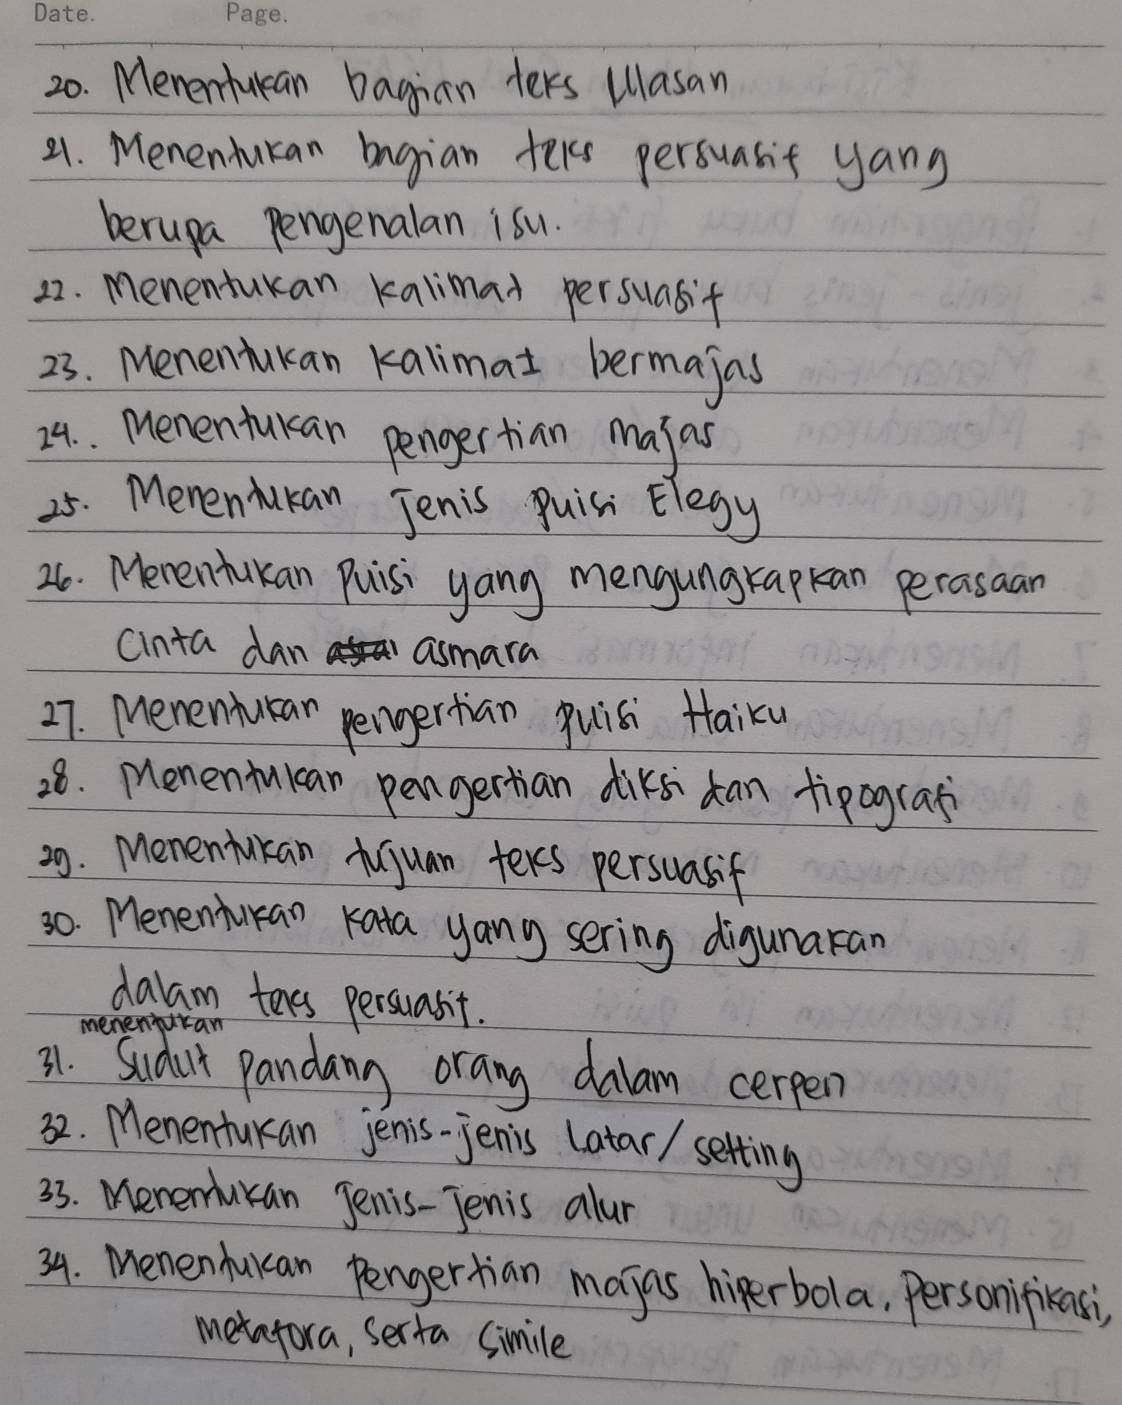 Date. Page.
20. Menentukan bagian teks Ulasan
21. Menentukan bagian teks persuasif yang
berupa pengenalan isu.
22. Menentukan kalimat persuasif
23. Menentukan kalimat bermajas
24. Menentukan pengertian majas
25. Menentukan Jenis puisi Elegy
26. Menentukan Puisi yang mengungkapkan perasaan
cinta dan asmara
27. Menentukan pengertian puisi Haiku
28. Menentukan pengertian diksi dan tipografi
29. Menentukan tujuan teks persuasif
30. Menentukan kata yang sering digunakan
dalam teks persuasif.
menentukan
31. Sudut pandang orang dalam cerpen
32. Menentukan jenis-jenis latar/setting
33. Menentukan Jenis-Jenis alur
34. Menentukan Pengertian majas hiperbola, Personifikasi,
metafora, serta simile